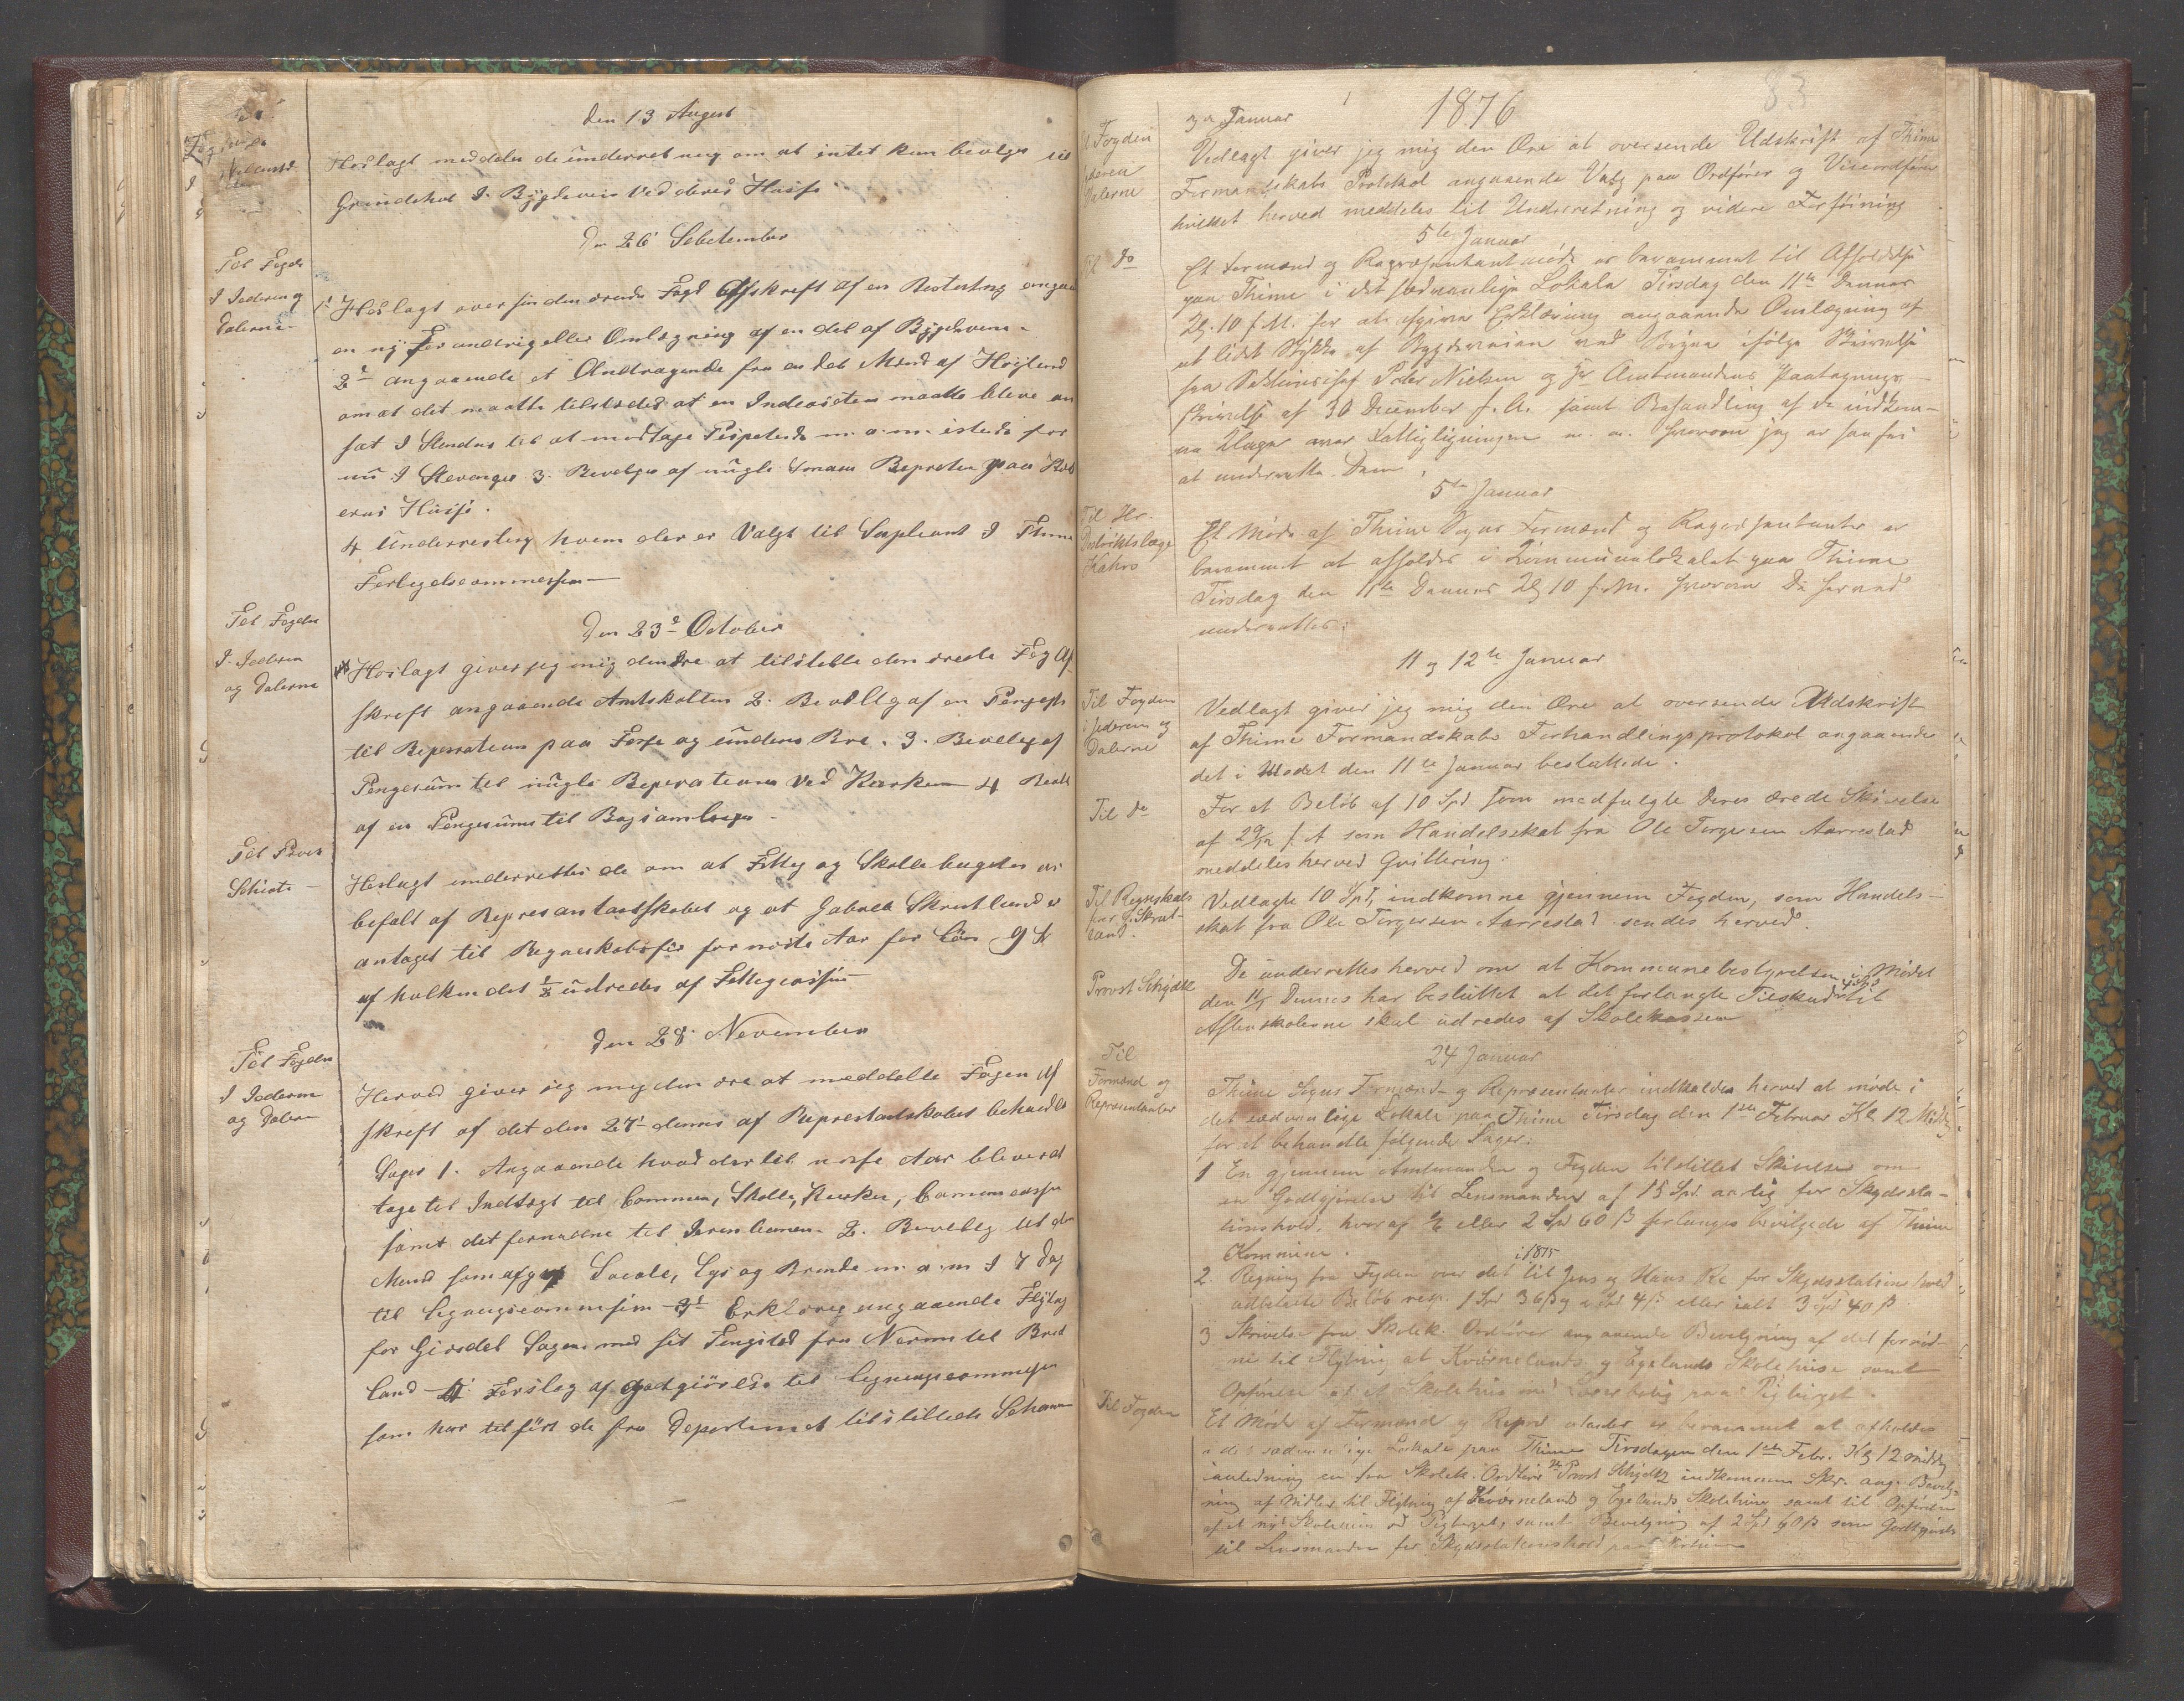 den 13 August
Hoslagt meddeles de underretning om at intet kan bevilges til
Grindehol I Bygdeveien ved deres Huse
Den 26 Sebetember
Til Fogden
I Jederen og
Dalerne
1. Hoslagt over sendes den ærede Fogd Afskreft af en
en ny Forandring eller Omlægning af en del af Bygdeveien
2 angaaende et Andragende fra en del Mænd af Høiland
om at det maatte tilstedes at en Indcasator maatte blive an
sat I Sandnes til at modtage m. m. istede for
nu I Stavanger 3. Bevelges af nugle Reperation paa
eens Huse.
4 Underretning hvem der er Valgt til Supleant I Thime
Forligelsecommission
Den 23 October
Til Fogden
I Jederen
og Dalerne
Hoslagt giver jeg mig den Ære at tilstelle den ærede Fog Af
skreft angaaende Amtskatten 2. Bevillg af en Pengesum
til Reperation paa Fosse og Undem Bro. 3. Bevelg af
Pengesum til nugle Reperationer Ved Kirken 4 Bevil
af en Pengesum til Bogsamlingen
Til Provst
Schiøtz
Hoslagt underrettes de om at Fattig og Skolle bugeten er
befalt af Represantantskabet og at Gabriel Skretland er
antaget til Regneskabsfør for næste Aar for Løn 9 Sp
af hvilken det ½ udredes af Fattigcassen
Den 28 November
Til Fogden
I Jæderen
og Dalerne
Herved giver jeg mig den ære at meddelle Fogen Af
skreft af det den 27 dennes af Represtantskabet behandlet
Sager 1. Angaaende hvad der til næste Aar blever at
tage til Indtægt til Commun, Skolle, Kirke,
samt det fornødne til Jærnbanen 2. Bevellg til de
Mend som afgav Locale, Lys og Brende m. m. I 7 Dag
til Legningscommision 3 Erklæring angaaende Flytng
for Giesdal Sogn med sit Tingsted fra Nærem til Bred
land 4 Forslag af Godtgiørelse til legningscommision
som har tilført de fra Departement tilstillede Schema
1876
83
3die Januar
Til Fogden
i Jæderen
Dalerne
Vedlagt giver jeg mig den Ære at oversende Udskrift af Thime
Formandskabs Protokol angaaende Valg paa Ordfører og Viceordfører
hvilket herved meddeles til Underretning og videre Forføining
5te Januar
Til Do
Et Formænd og Repræsentantmøde er berammet til Afholdelse
paa Thime i det sædvanlige Lokale Tirsdag den 11te Dennes
Kl. 10 f.M. for at afgive Erklæring angaaende Omlægning af
et lidet Stykke af Bygdeveien ved Bryne ifølge Skrivelse
fra Sektionschef Peter Nielsen og Hr Amtmandens Paategnings
skrivelse af 30 December f. A. samt Behandling af de indkom-
ne Klager over Fattigligningen m. m. hvorom jeg er saa fri
at underrette Dem.
5te Januar
Til Hr.
Distriktslæge
Et Møde af Thime Sogns Formænd og Repræsentanter er
berammet at afholdes i Kommunelokalet paa Thime
Tirsdag den 11te Dennes Kl 10 f.M. hvorom De herved
underrettes.
11 og 12te Januar
Til Fogden
i Jederen og
Dalerne
Vedlagt giver jeg mig den Ære at oversende Udskrift
af Thime Formandskabs Forhandlingsprotokol angaaende
det i Modet den 11te Januar besluttede.
Til Do
For et Beløb af 10 Spd som medfulgte Deres ærede Skrivelse
af 29/12 f. A som Handelsskat fra Ole Torgersen Aarrestad
meddeles herved Qvittering.
Til Regnskabs
før G. Skret-
land.
Vedlagte 10 Spd, indkomne gjennem Fogden, som Handels-
skat fra Ole Torgersen Aarrestad sendes herved.
Provst Schjøtz
De underrettes herved om at Kommunebestyrelsen i Mødet
den 11/1 Dennes har besluttet at det forlangte Tilskud 4 Spd til
Aftenskolerne skal udredes af Skolekassen
24 Januar
Til
Formænd og
Repræsentanter
Thime Sogns Formænd og Repræsentanter indkaldes herved at møde i
det sædvanlige Lokale paa Thime Tirsdag den 1ste Februar Kl 12 Middag
for at behandle følgende Sager:
1 En gjennem Amtmanden og Fogden tilstillet Skrivelse om
en Godtgjørelse til Lensmanden af 15 Spd. aarlig for Skydssta-
tionshold, hvoraf 1/6 eller 2 Spd 60 ß forlanges bevilgede af Thime
Kommune.
2. Regning fra Fogden over det i 1875 til Jens og Hans Re for Skydsstations hold
udbetalte Beløb resp. 1 Spd 36 ß og 2 Spd 4 ß eller ialt 3 Spd 40 ß.
3 Skrivelse fra Skolek. Ordfører angaaende Bevilgning af det fornød-
ne til Flytning af Kvernelands og Egelands Skolehuse samt
Opførelse af et Skolehus med Lærerbolig paa
Til Fogden
Et Møde af Formænd og Repræsentanter er berammet at afholdes
i det sædvanlige Lokale paa Thime Tirsdagen den 1ste Febr. Kl 12 middag
i anledning en fra Skolek. Ordfører Hr Provst Schjøtz indkommen Skr. ang. Bevilg-
ning af Midler til Flytning af Kverneland og Egelands Skolehuse samt til Opførelse
af et nyt Skolehus samt Bevilgning af 2 Spd 60 ß som Godtgjørelse
til Lensmanden for Skydsstationshold paa